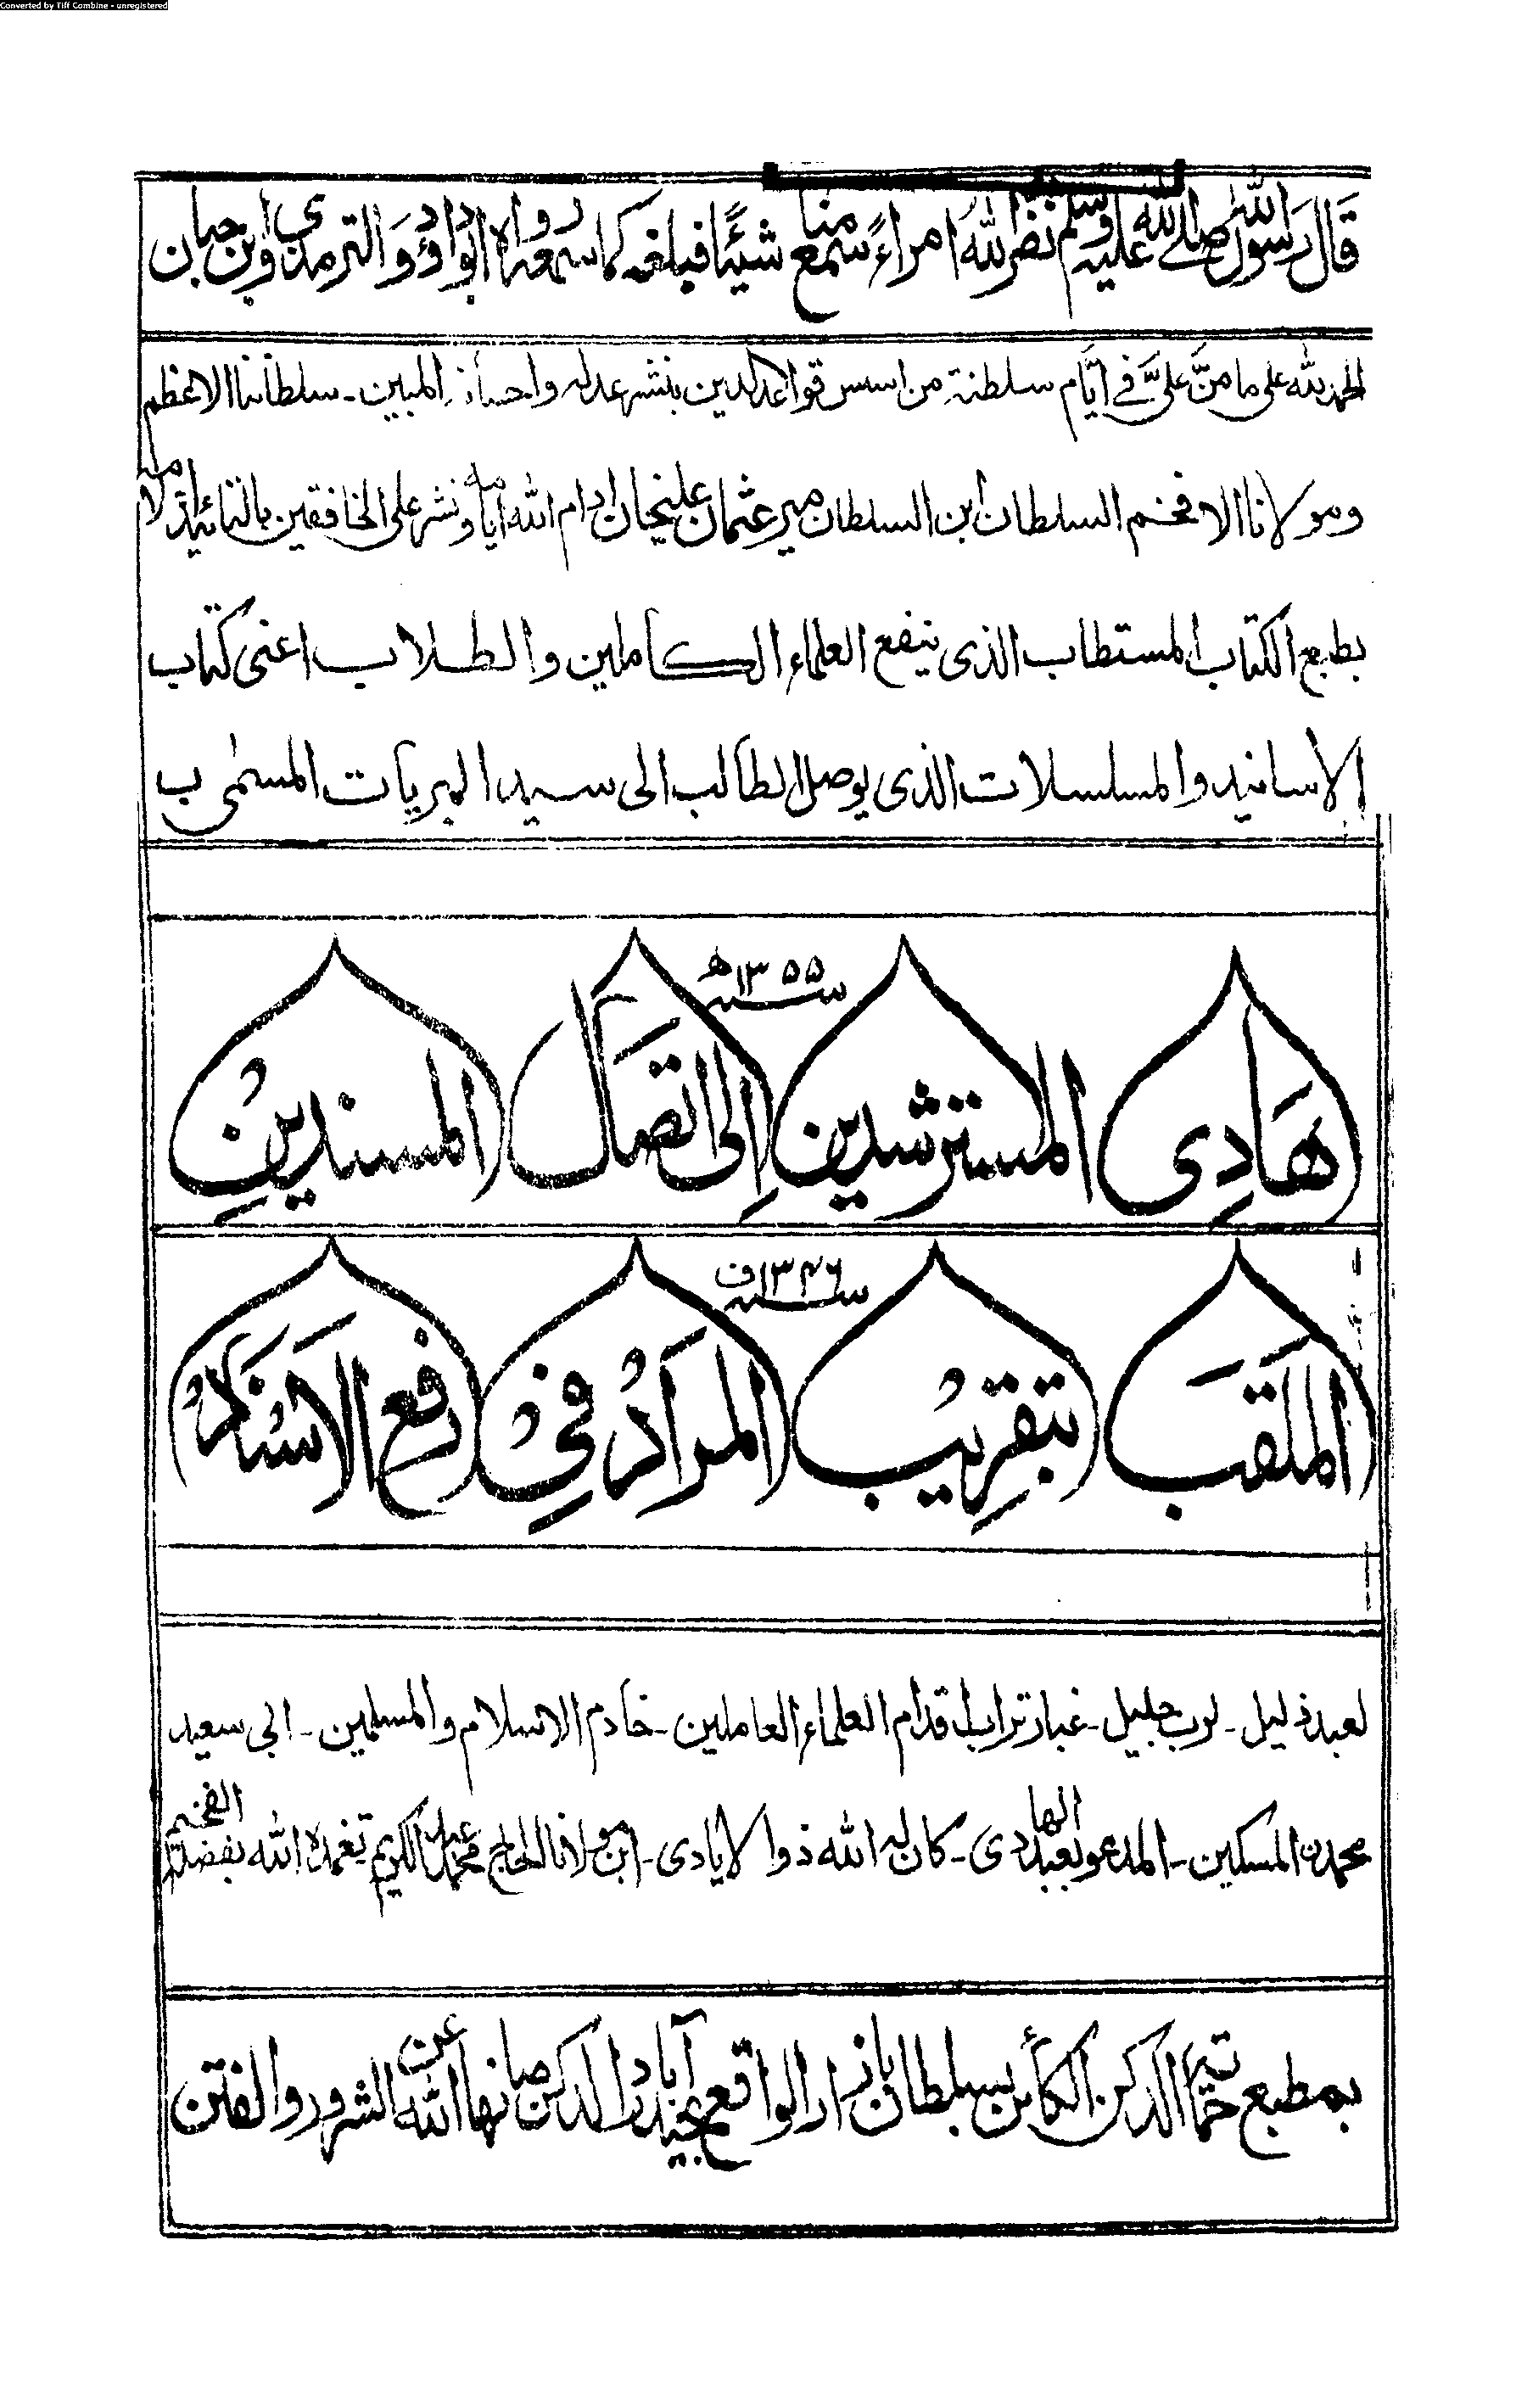 Converted by Tiff Combine - unregistered
قَالَ رَسُولُ اللهِ صلى الله عليه وسلم نضر الله امراءً سمع منا شيئًا فبلغه كما سمعه رواه ابوداؤد وَالترمذى وابن حبان
الحمد لله على ما منَّ علىَّ فى ايَّام سلطنة من اسس قواعد الدين بنشر عدله واحسانه المبين - سلطاننا الاعظم
ومولانا الافخم السلطان ابن السلطان مير عثمان علیخان ادام الله ايامه ونشر على الخافقين بالتائيد
بطبع الكتاب المستطاب الذى ينفع العلماء الكاملين والطلاب اعنى كتاب
الاسانيد والمسلسلات الذى يوصل الطالب الى سيد البريات المسمى ب
سنه ١٣٥٥ھ
هَادِى المسترشدين اِلى اتصَال المسندين
سنه ١٣٤٦ف
الملَقبَ بتقرِيب المرَاد فِى رفع الاسْنَاد
لعبد ذليل - لرب جليل - غبار تراب اقدام العلماء العاملين - خادم الاسلام والمسلمين - ابى سعيد
محمدن المسكين - المدعو بعبد الهادى - كان له الله ذو الايادى - ابن مولانا الحاج محمد عبد الكريم تغمده الله بفضله الفخيم
بمطبع حمايتِ الدكن الكائن بسلطان بازار الواقع بحيدرآباد الدكن صانها الله عن الشرور والفتن